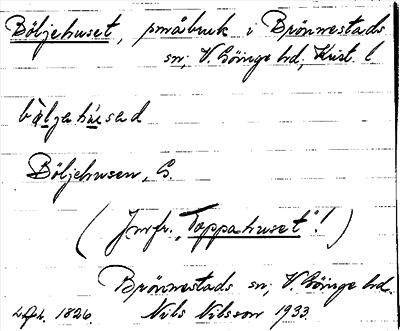 Böljehuset, småbruk i Brönnestads
sn, V. Göinge hd, Krist. l
bö̀ljehúsed
Böljehusen, G.
(Jmfr. "Toppahuset"!)
Brönnestads sn, V. Göinge hd.
1826. Nils Nilsson 1933.